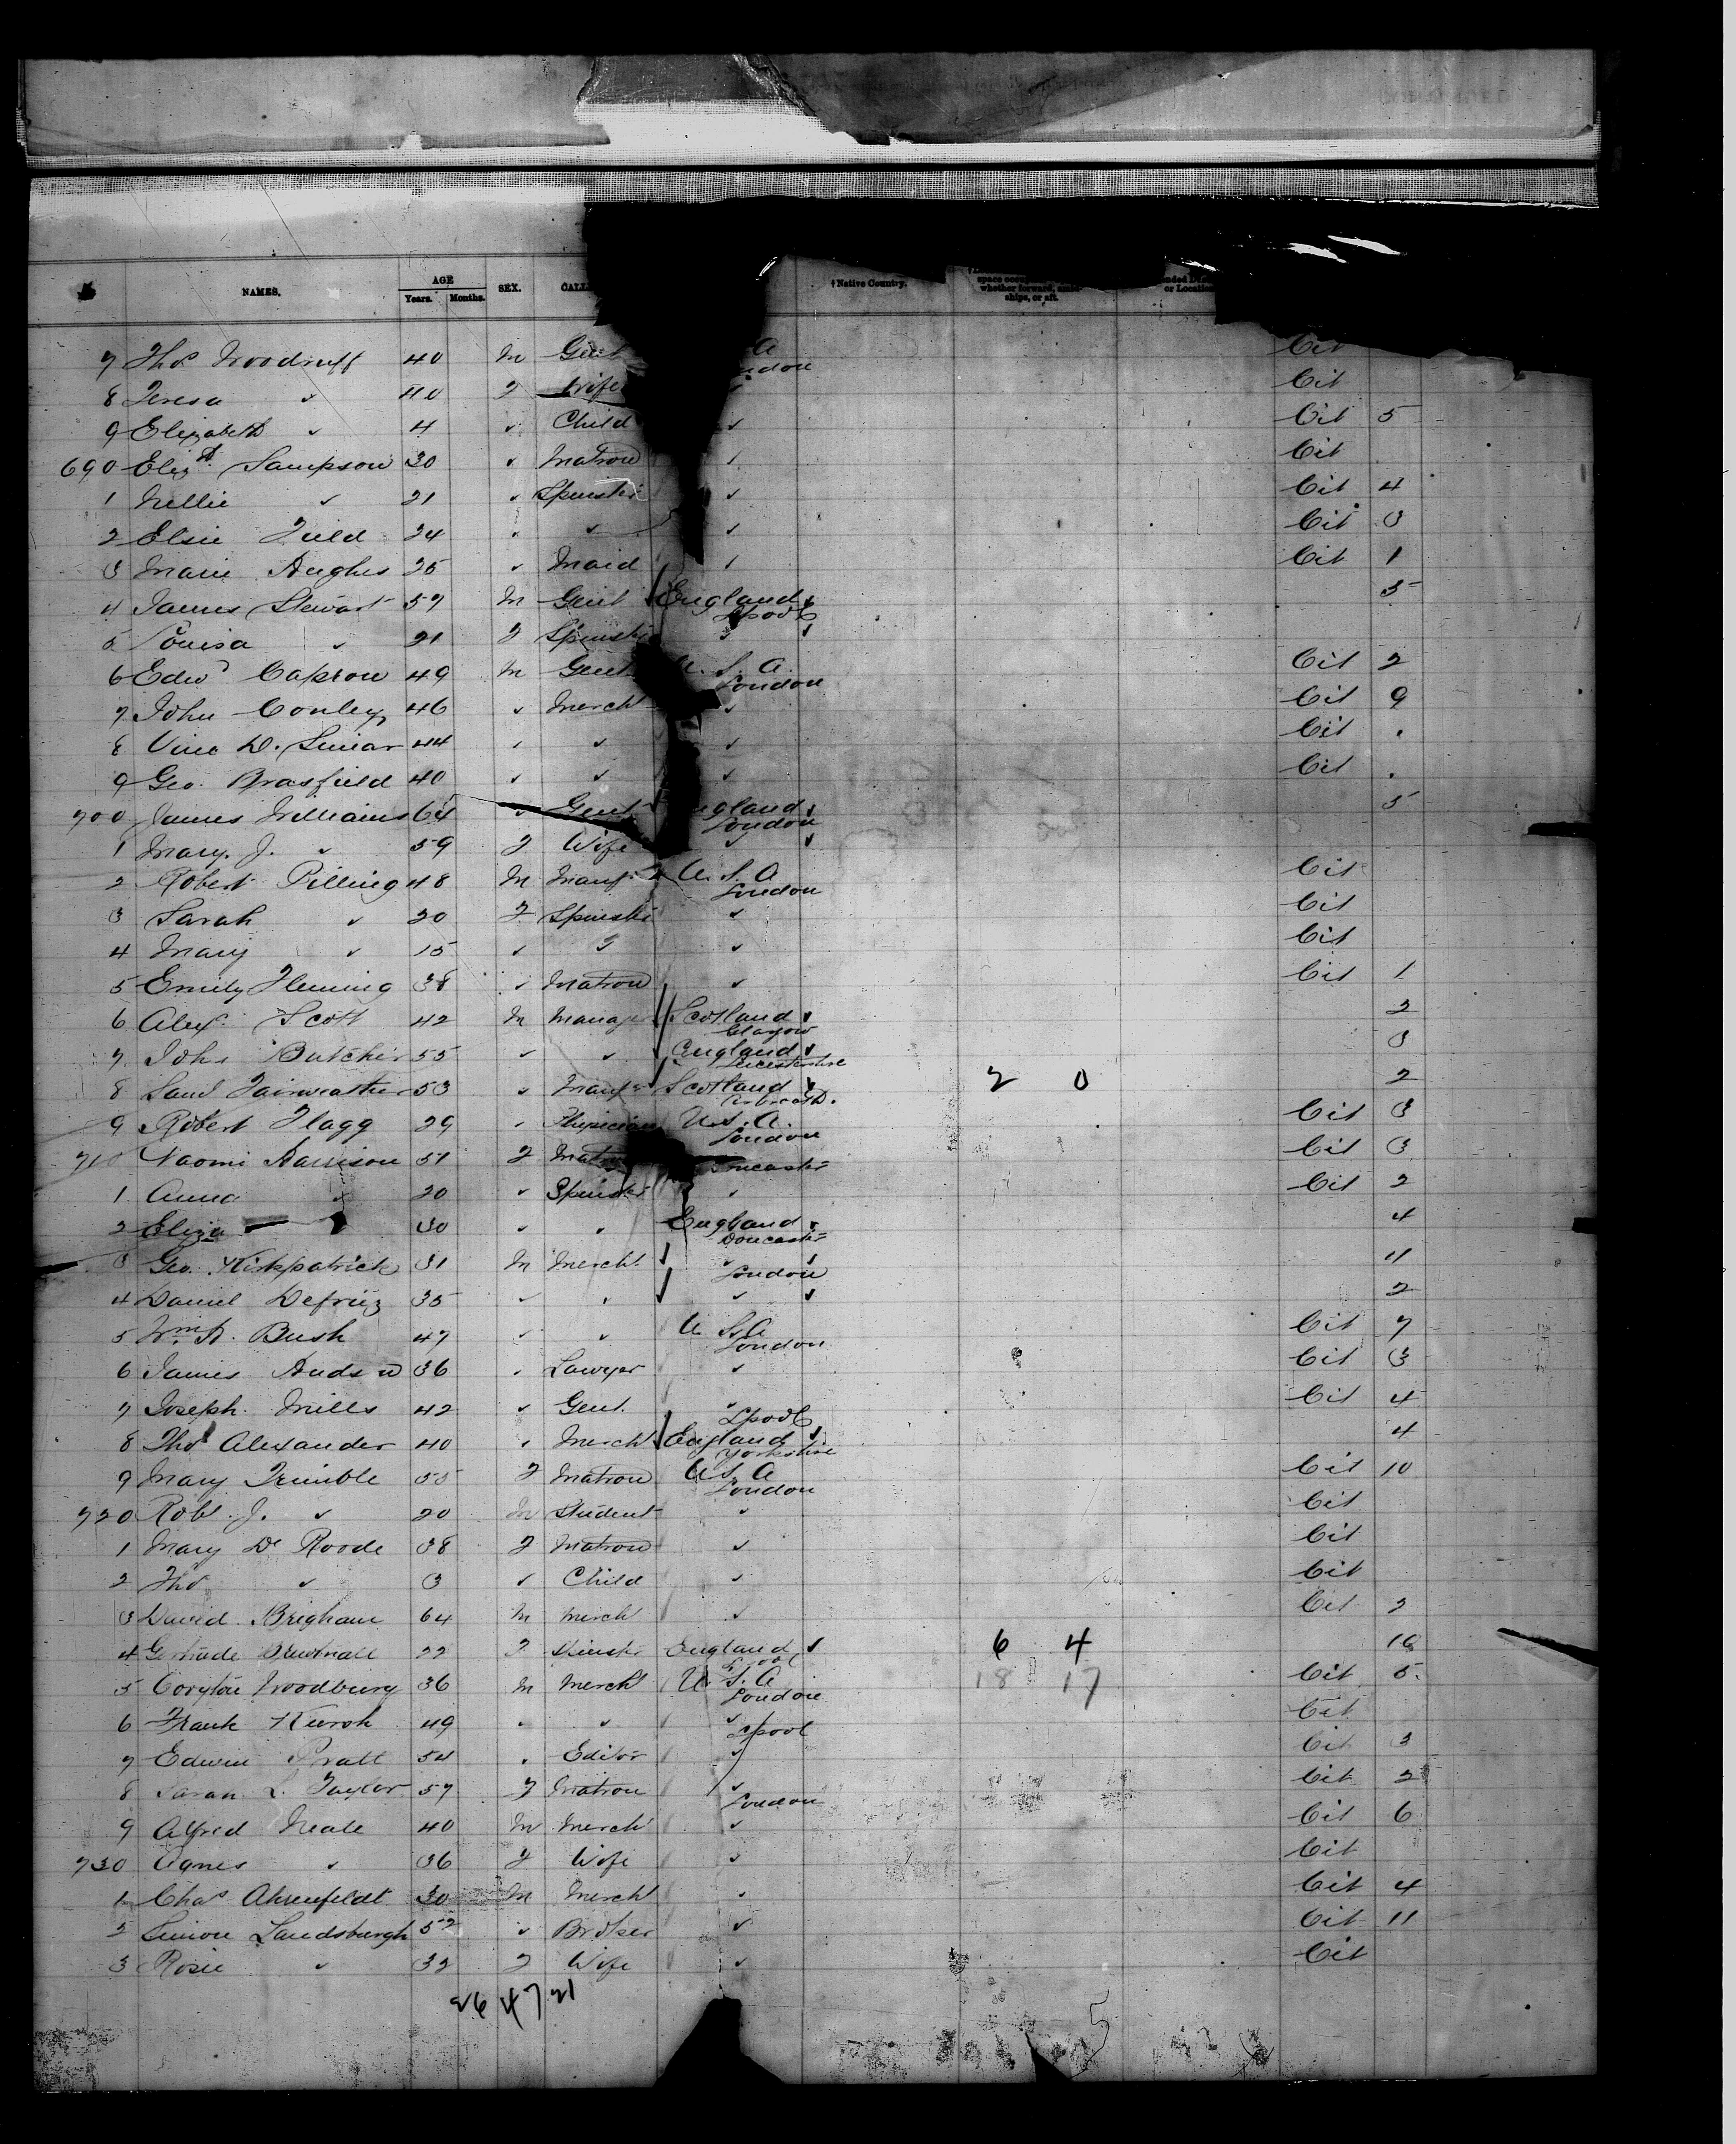 NAMES. AGE Years. Months. SEX. CALL †Native Country. space occupied whether forward, amidships, or aft. nded De or Location
7 Thos Woodruff 40 M Gent A ndon Cit
8 Teresa " 40 F Wife " Cit
9 Elizabeth " 4 " Child " Cit 5
690 Elizth Sampson 30 " Matron " Cit
1 Nellie " 21 " Spinster " Cit 4
2 Elsie Field 24 " " " Cit 3
3 Marie Hughes 25 " Maid " Cit 1
4 James Stewart 57 M Gent England Lpool 5
5 Louisa " 21 F Spinster "
6 Edwd Capron 49 M Gent U.S.A. London Cit 2
7 John Conley 46 " Mercht " Cit 9
8 D. 44 " " " Cit "
9 Geo. Brasfield 40 " " " Cit "
700 James Williams 64 " Gent England London 5
1 Mary J. " 59 F Wife "
2 Robert Pilling 48 M Manfr U.S.A London Cit
3 Sarah " 20 F Spinster " Cit
4 Mary " 15 " " " Cit
5 Emily Fleming 38 " Matron " Cit 1
6 Alex. Scott 42 M Manager Scotland Glasgow 2
7 John Butcher 55 " " England Leicestershire 3
8 Saml Fairweather 53 " Manfr Scotland Arbroath. 2 0 2
9 Robert Flagg 29 " Physician U.S.A. London Cit 3
710 Naomi Harrison 51 F Matron Doncaster Cit 3
1 Anna " 20 " Spinster " Cit 2
2 Eliza 30 " " England Doncaster 4
3 Geo. Kirkpatrick 31 M Mercht " London 4
4 Daniel Defriez 35 " " " 2
5 Wm H. Bush 47 " " U.S.A London Cit 7
6 James Hudson 36 " Lawyer " Cit 3
7 Joseph Mills 42 " Gent. " Lpool Cit 4
8 Thos Alexander 40 " Mercht England Yorkshire 4
9 Mary Trimble 55 F Matron U.S.A London Cit 10
720 Robt. J. " 20 M Student " Cit
1 Mary De Roode 38 F Matron " Cit
2 Thos " 3 " Child " Cit
3 David Brigham 64 M Mercht " Cit 2
4 Gertrude 22 F Spinster England Lpool 6 4 10
5 Coryton Woodbury 36 M Mercht U.S.A London 18 17 Cit 5
6 Frank 49 " " " Lpool Cit
7 Edwin Pratt 54 " Editor " Cit 3
8 Sarah L. Taylor 57 F Matron " London Cit 2
9 Alfred Neale 40 M Mercht " Cit 6
730 Agnes " 36 F Wife " Cit
1 Chas Ahrenfeldt 30 M Mercht " Cit 4
2 Simon Landsburgh 52 " Broker " Cit 11
3 Rosie " 32 F Wife " Cit
26 47 21